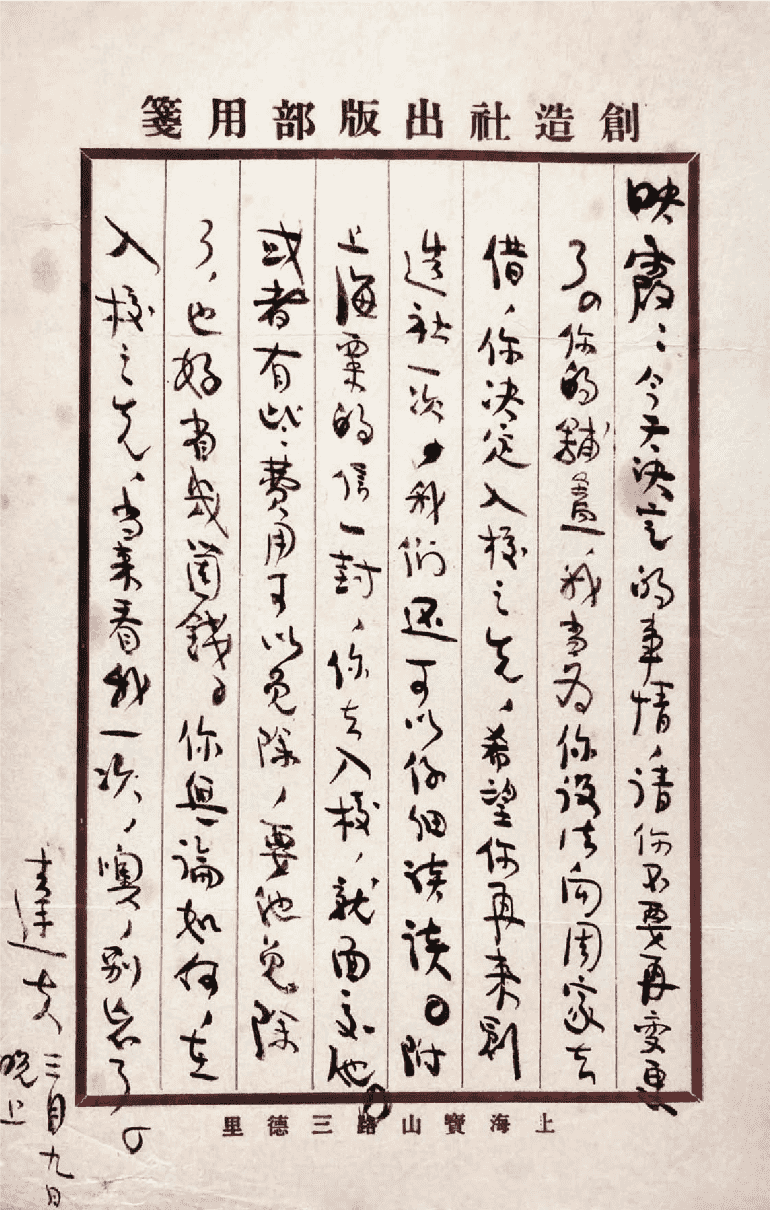 創造社出版部用箋
映霞：今天决定的事情，请你不要再变更
了。你的鋪盖，我当为你设法向周家去
借，你决定入校之先，希望你再来創
造社一次，我们還可以仔细谈谈。附
上海粟的信一封，你去入校，就面交他。
或者有些费用可以免除，要他免除
了，也好省幾箇錢。你無論如何，在
入校之先，当来看我一次，噢，别忘了。
達夫
三月九日
晚上
上海寶山路三德里